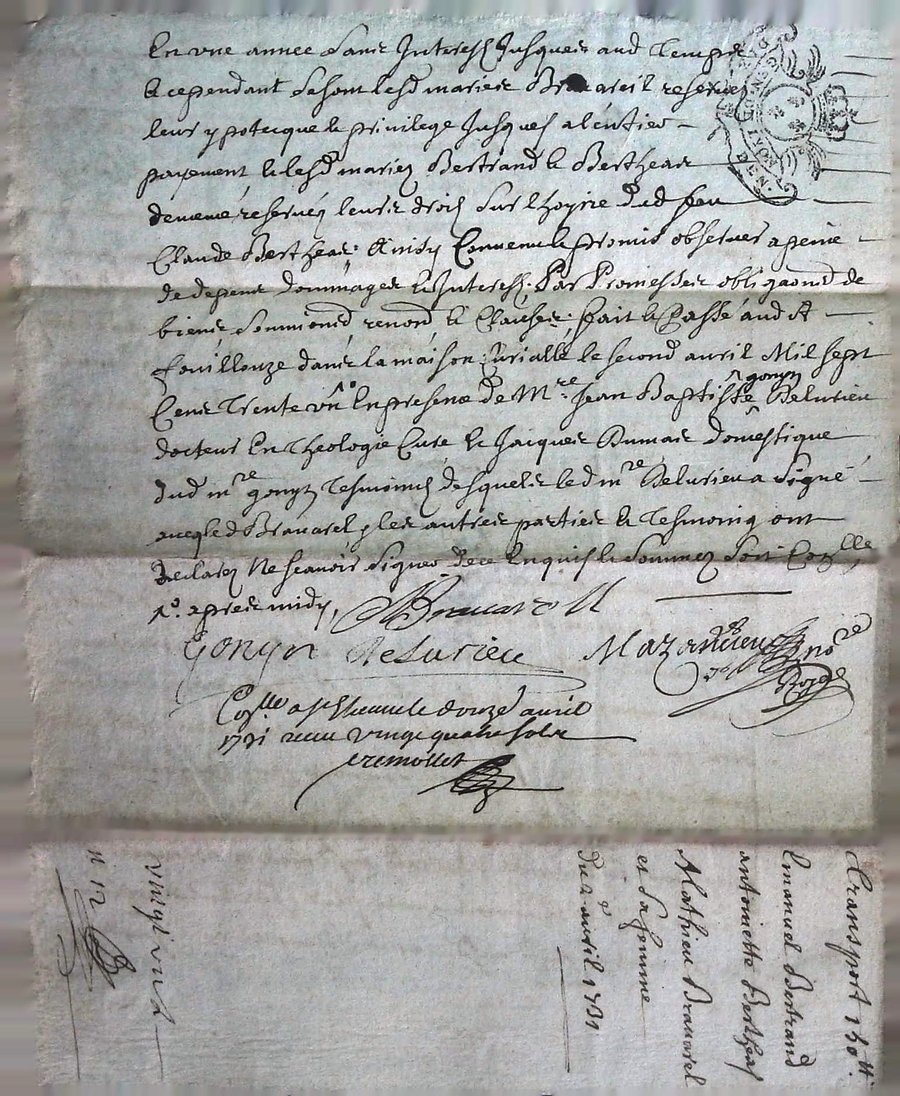 En vne année sans Interest Jusques aud temps
Et cependant se sont lesd mariez Brauarel reservé
leur ypotecque le privilege Jusques a lentier
payement et lesd mariez Bertrand et Bertheas
de meme reservez leurs droits sur lhoyrie dud feu
Claude Bertheas: Ainsy Convenu et promis observer a peine
de depens dommages et Interest. Par Promesses obligaōnd de
biens, Soummond, renond, et Clauses: fait et Passé aud St
fouillouze dans la maison Curialle le second auril Mil sept
Cens Trente vn
En presence de Mre Jean Baptiste gonyn Delurieu
docteur En Theologie Curé et Jacques Dumas domestique
dud mre gonyn Tesmoins desquels led mre Delurieu a signé
auec led Brauarel, les autres parties et Tesmoing ont
declarez Ne scauoir signer de ce Enquis et Sommez Soit Conlle
apres midy, Brauarell
Gonyn delurieu Mazenod no.re Royal
Con.lle a St le douze auril
1731 receu vingt quatre sols
cremollet
Transport 150tt.
Emanuel Bertrand
antoinette Bertheas
A Mathieu Brauarel
et Sa femme
du 2e auril 1731
vingt vn
n 12